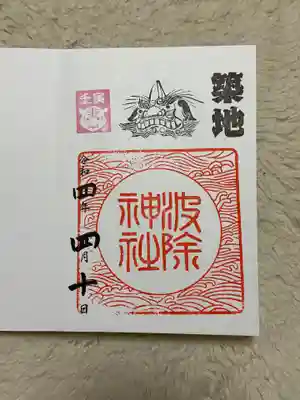 築地
波除
神社
壬寅
令和四年四月十日